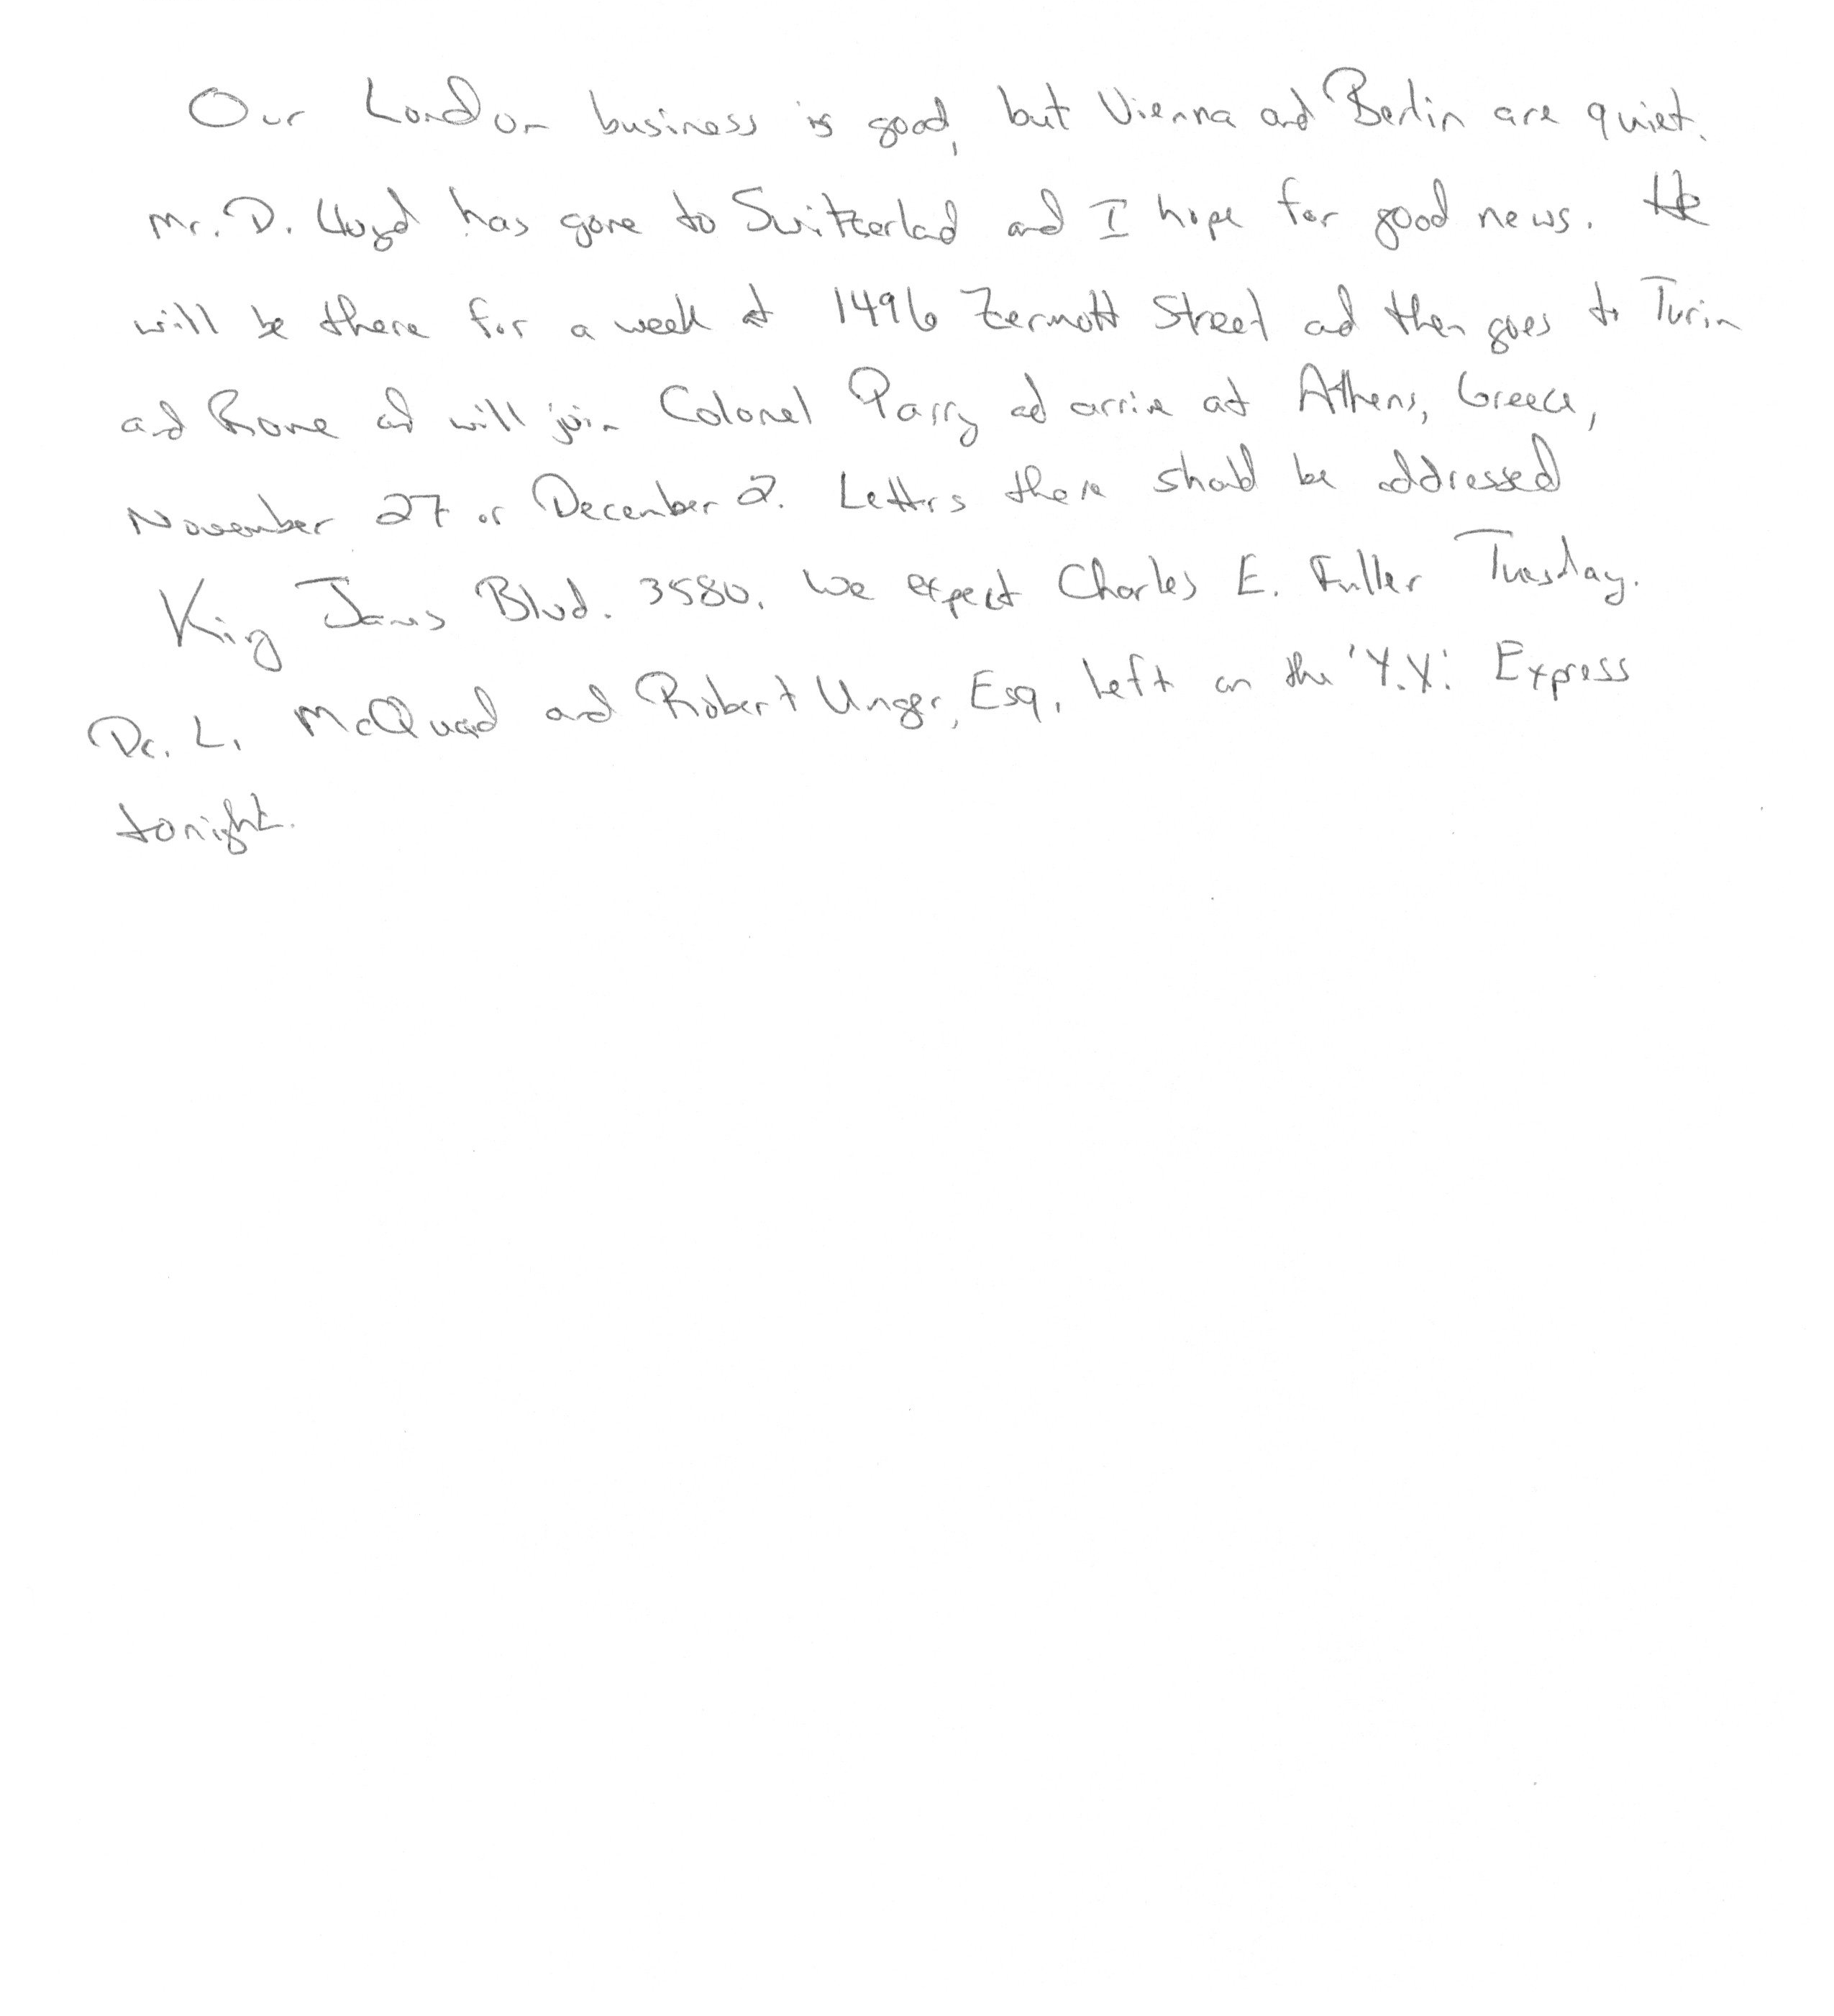 Our London business is good, but Vienna and Berlin are quiet.
Mr. D. Lloyd has gone to Switzerlad and I hope for good news. He
will be there for a week at 1496 Zermott Street ad then goes to Turin
and Rome ad will join Colonel Parry ad arrive at Athens, Greece,
November 27 or December 2. Letters there should be addressed
King James Blvd. 3580. We expect Charles E. Fuller Tuesday.
Dr. L. McQuaid and Robert Unger, Esq., left on the 'Y.X.' Express
tonight.